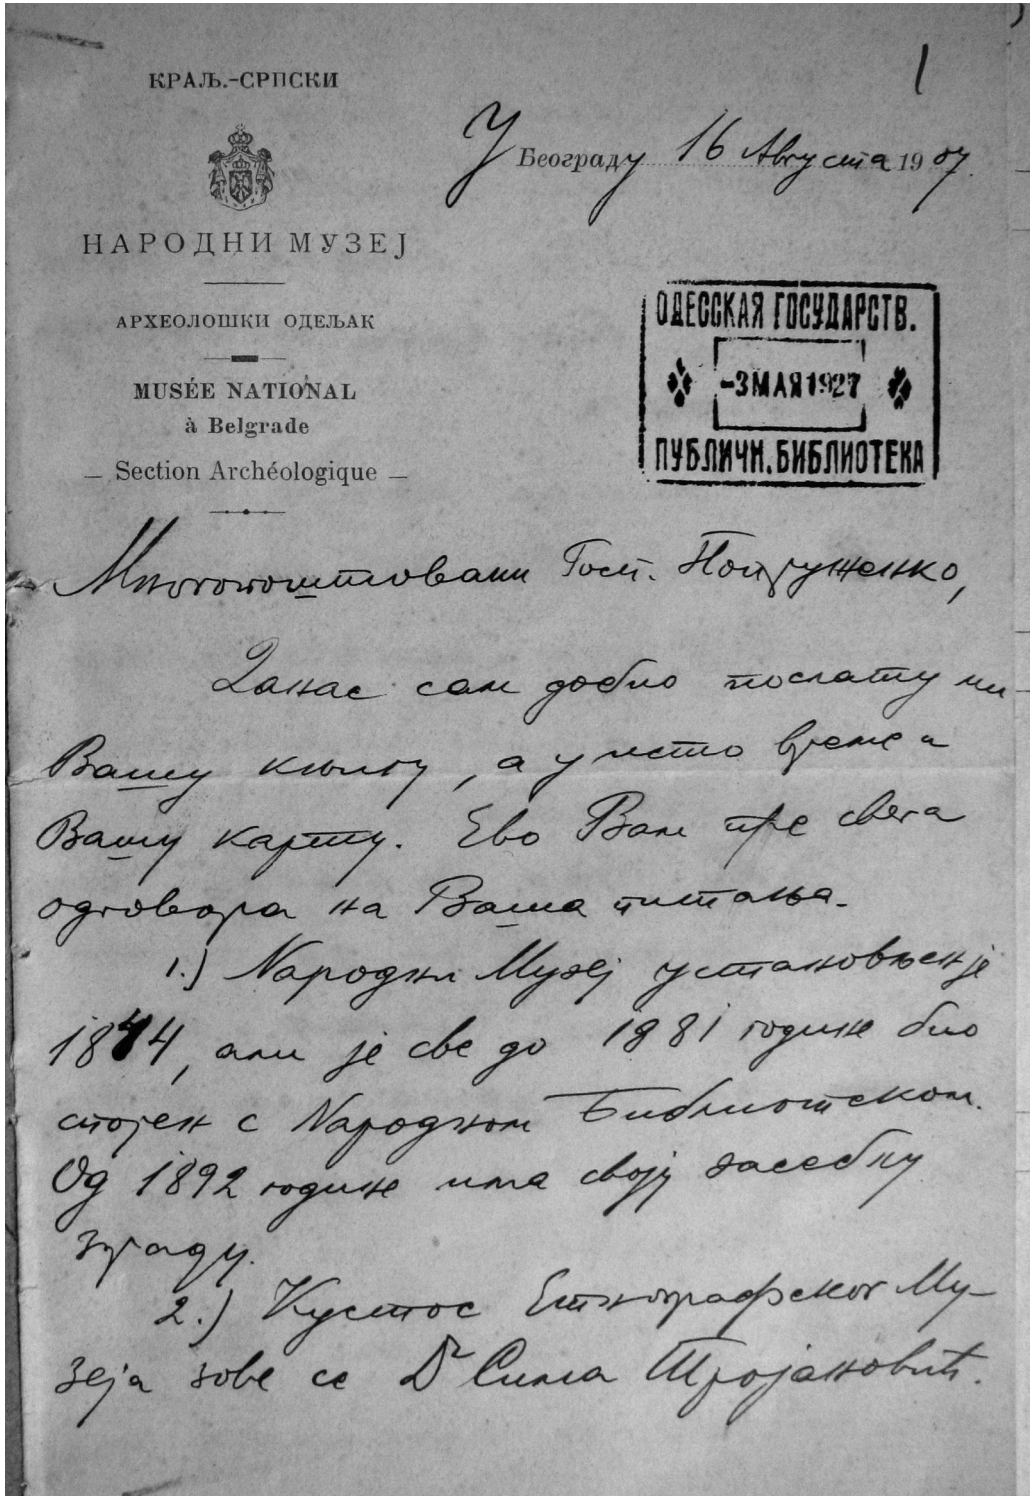 1
КРАЉ.-СРПСКИ
У Београду 16 Августа 1907.
НАРОДНИ МУЗЕЈ
АРХЕОЛОШКИ ОДЕЉАК
MUSÉE NATIONAL
à Belgrade
— Section Archéologique —
ОДЕССКАЯ ГОСУДАРСТВ.
-3 МАЯ 1927
ПУБЛИЧН. БИБЛИОТЕКА
Многопоштовани Госп. Попруженко,
Данас сам добио послату ми
Вашу књигу, а у исто време и
Вашу карту. Ево Вам пре свега
одговора на Ваша питања.
1.) Народни Музеј установљен је
1844, али је све до 1881 године био
спојен с Народном Библиотеком.
Од 1892 године има своју засебну
зграду.
2.) Кустос Етнографског Му-
зеја зове се Dr Сима Тројановић.